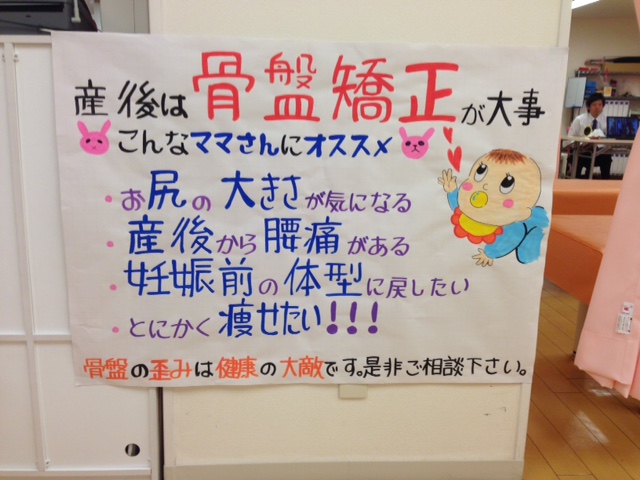 産後は骨盤矯正が大事
こんなママさんにオススメ
・お尻の大きさが気になる
・産後から腰痛がある
・妊娠前の体型に戻したい
・とにかく痩せたい!!!
骨盤の歪みは健康の大敵です。是非ご相談下さい。